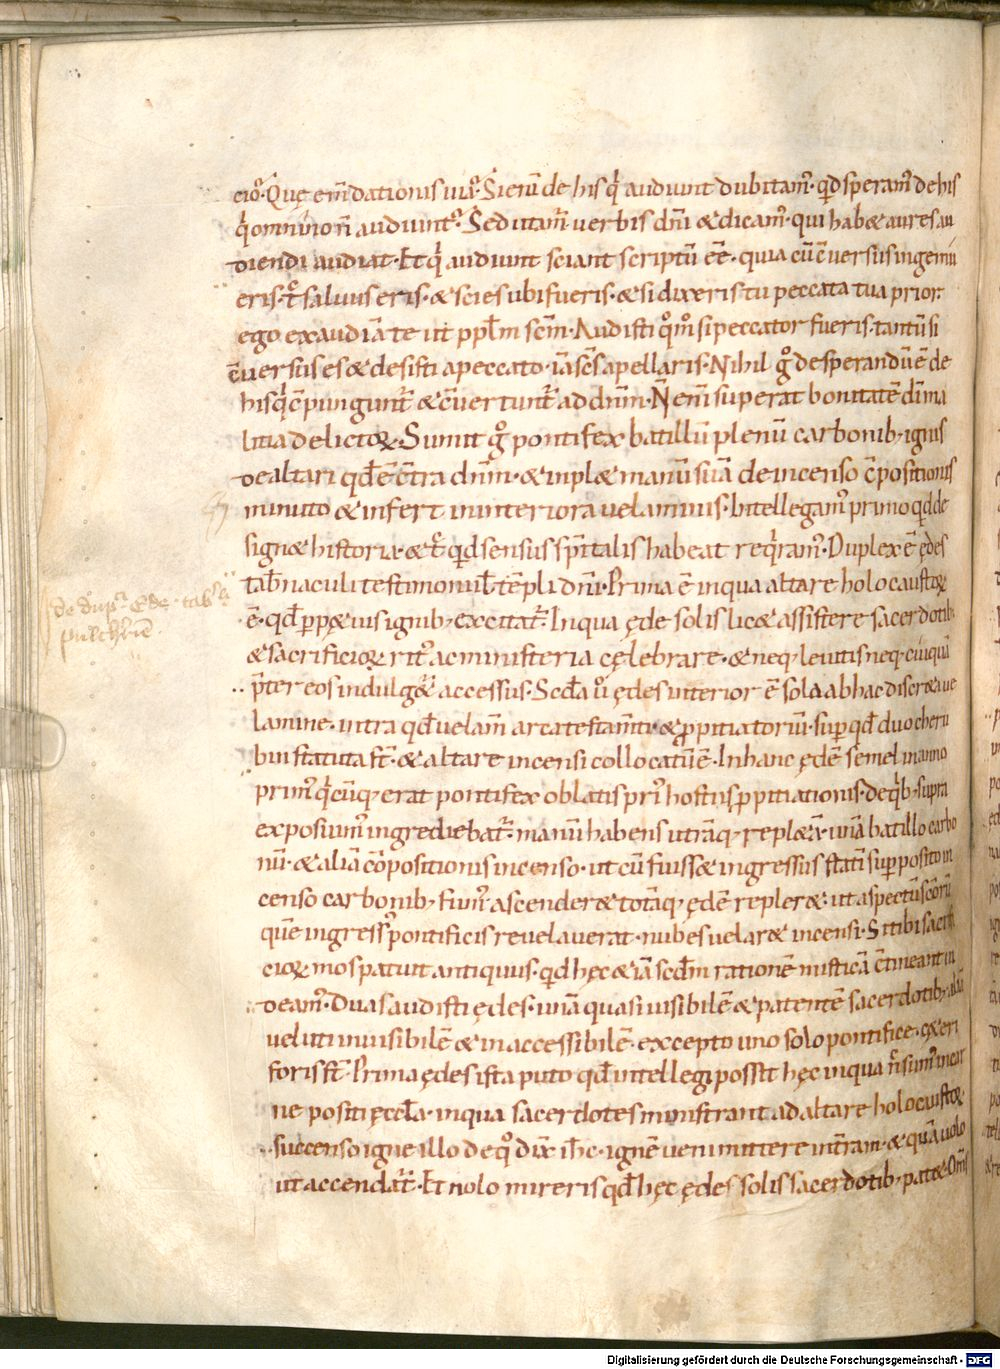 cio᷒· Quę em̄dationis uia᷒· Si enī de his q̍ audiunt dubitam᷒· qđ speram᷒ de his
q̍ omnino n̄ audiunt᷒· Sed utam̄ uerbis dn̄i & dicam᷒· qui hab& aures au
diendi audiat· Et q̍ audiunt sciant scriptū eē· quia cū c̄uersus ingemu
eris· t̄c saluus eris· & scies ubi fueris· & si dixeris tu peccata tua prior·
ego exaudiā te ut ppl̄m sc̄m· Audisti qͦm᷒ si peccator fueris· tantū si
c̄uersus es & desisti a peccato· iā sc̄s apellaris· Nihil gͦ desperandū ē de
his q̍ c̄pungunt᷒ & c̄uertunt᷒ ad dn̄m· N̄ enī superat bonitatē dī ma
litia delictoꝝ· Sumit gͦ pontifex batillū plenū carbonib; ignis
de altari qđ ē c̄tra dn̄m· & inpl& manū suā de incenso c̄positionis
minuto & infert in interiora uelaminis· Intellegam᷒ primo qđ de
sign& historia· & t̄c qđ sensus sp̄italis habeat req̍ram᷒· Duplex ē ędes
tab̄naculi testimonii ł tēpli dn̄i· Prima ē in qua altare holocaustoꝝ
ē· qđ ꝑpętuis ignib; excitat᷒· In qua ęde solis lic& assistere sacerdotib;
& sacrificioꝝ rit᷒ ac ministeria cęlebrare· & neq; leuitis neq; cuiquā
p̄ter eos indulg&᷒ accessus· Scđa u̍ ędes interior ē sola ab hac discr&a ue
lamine· intra qđ uelam̄ arca testam̄ti· & ꝓpitiatoriū· suꝑ qđ duo cheru
bin statuta st̄· & altare incensi collocatū ē· In hanc ędē semel in anno
prim᷒ q̍cūq; erat pontifex oblatis pri᷒ hostiis ꝓpitiationis· de q̍b; supra
exposuim᷒ ingrediebat᷒· manū habens utrāq; repl&ā· unā batillo carbo
nū· & aliā c̄positionis incenso· ut cū fuiss& ingressus statī suꝑposito in
censo carbonib; fum᷒ ascender& totāq; ędē repler&· ut aspectū sc̄oꝝ
quē ingress᷒ pontificis reuelauerat· nubes uelar& incensi· Si tibi sacrifi
cioꝝ mos patuit antiquus· qđ hęc & iā scđm rationē misticā c̄tineant in
deam᷒· Duas audisti ędes· unā quasi uisibilē & patentē sacerdotib; aliā
uelut inuisibilē & inaccessibilē· excepto uno solo pontifice· cęteri
foris st̄· Prima ędes ista puto qđ intellegi possit hęc in qua n̄c sum᷒ in car
ne positi ęccl̄a· in qua sacerdotes ministrant ad altare holocaustoꝝ
succenso igne illo de qͦ dix̄ ih̄c· ignē ueni mittere in t̄ram· & quā uolo
ut accendat᷒· Et nolo mireris qđ hęc ędes solis sacerdotib; pat&· Om̄s